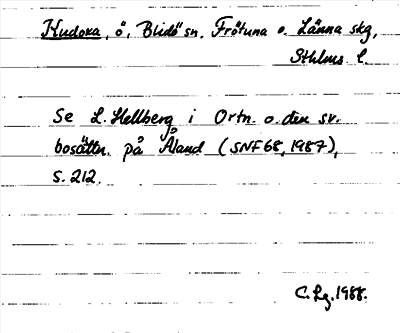 Hudoxa, ö, Blidö sn, Frötuna o. Länna skg,
Sthlms l.
Se L. Hellberg i Ortn. o. den sv.
bosättn. på Åland (SNF 68, 1987),
s. 212.
C. Lg. 1988.